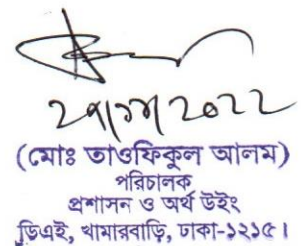 ২০২২
(মোঃ তাওফিকুল আলম)
পরিচালক
প্রশাসন ও অর্থ উইং
ডিএই, খামারবাড়ি, ঢাকা-১২১৫।